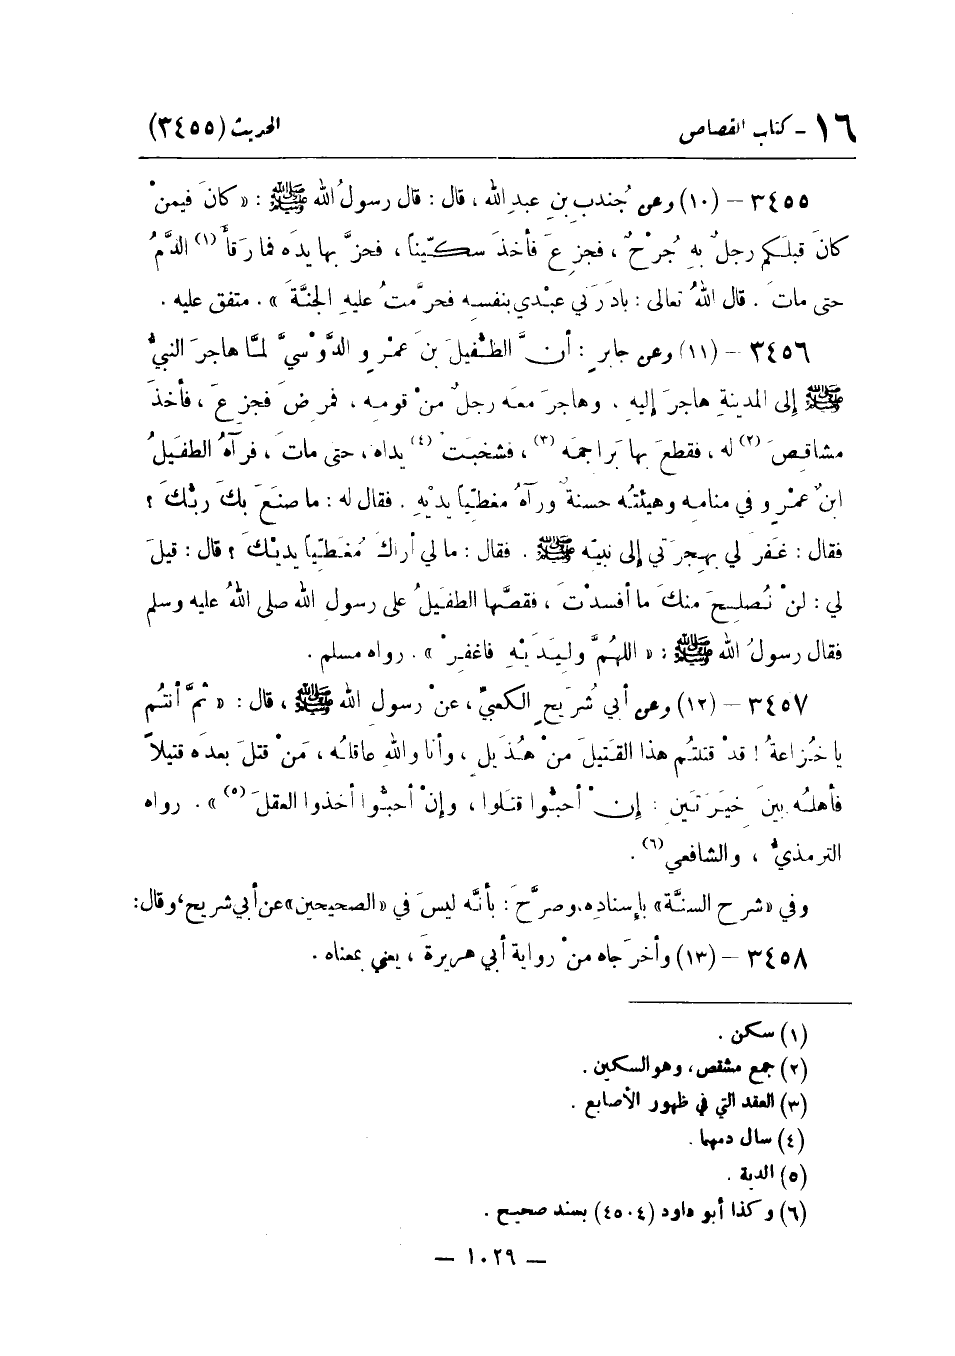 ١٦ - كتاب القصاص الحديث (٣٤٥٥)
٣٤٥٥ – (١٠) وعن جُندبِ بنِ عبدِ الله ، قال : قال رسولُ الله ﷺ : « كانَ فيمنْ
كانَ قبلَكم رجلٌ بهِ جُرْحٌ ، فجزِعَ فأخذَ سكّيناً ، فحزَّ بها يدَه فما رَقَأَ (١) الدَّمُ
حتى ماتَ . قال اللهُ تعالى : بادَرَني عبْدي بنفسِه فحرَّمتُ عليهِ الجنَّةَ » . متفق عليه .
٣٤٥٦ – (١١) وعن جابرٍ : أنَّ الطُّفيلَ بنَ عمْرٍو الدَّوْسيَّ لمَّا هاجرَ النبيُّ
ﷺ إلى المدينةِ هاجرَ إليهِ ، وهاجرَ معَه رجلٌ منْ قومِه ، فمرِضَ فجزِعَ ، فأخذَ
مشاقِصَ (٢) له ، فقطعَ بها بَراجمَه (٣) ، فشخبَتْ (٤) يداه ، حتى ماتَ ، فرآهُ الطفيلُ
ابنُ عمْرٍو في منامِه وهيئتُه حسنةٌ ورآهُ مغطّياً يديْهِ . فقال له : ما صنَعَ بكَ ربُّكَ ؟
فقال : غفَرَ لي بهِجرَتي إلى نبيّه ﷺ . فقال : ما لي أراكَ مُغطّياً يديْكَ ؟ قال : قيلَ
لي : لنْ نُصلِحَ منكَ ما أفسدْتَ ، فقصَّها الطفيلُ على رسولِ الله صلى اللهُ عليه وسلم
فقال رسولُ الله ﷺ : « اللهُمَّ ولِيَدَيْهِ فاغفِرْ » . رواه مسلم .
٣٤٥٧ – (١٢) وعن أبي شُرَيحٍ الكعبيِّ ، عنْ رسولِ الله ﷺ ، قال : « ثمَّ أنتُم
يا خُزاعةُ ! قدْ قتلتُم هذا القتيلَ منْ هُذَيلٍ ، وأنا واللهِ عاقلُه ، مَنْ قتلَ بعدَه قتيلاً
فأهلُه بينَ خيَرَتَينِ : إنْ أحبُّوا قتَلوا ، وإنْ أحبُّوا أخذوا العقلَ (٥) » . رواه
الترمذيُّ ، والشافعي (٦) .
وفي «شرح السنَّة» بإسنادِه، وصرَّحَ : بأنَّه ليسَ في «الصحيحين» عن أبي شريح، وقال:
٣٤٥٨ – (١٣) وأخرَجاه منْ رواية أبي هريرةَ ، يعني بمعناه .
(١) سكن .
(٢) جمع مشقص، وهو السكين .
(٣) العقد التي في ظهور الأصابع .
(٤) سال دمها .
(٥) الدية .
(٦) وكذا أبو داود (٤٥٠٤) بسند صحيح .
— ١٠٢٩ —